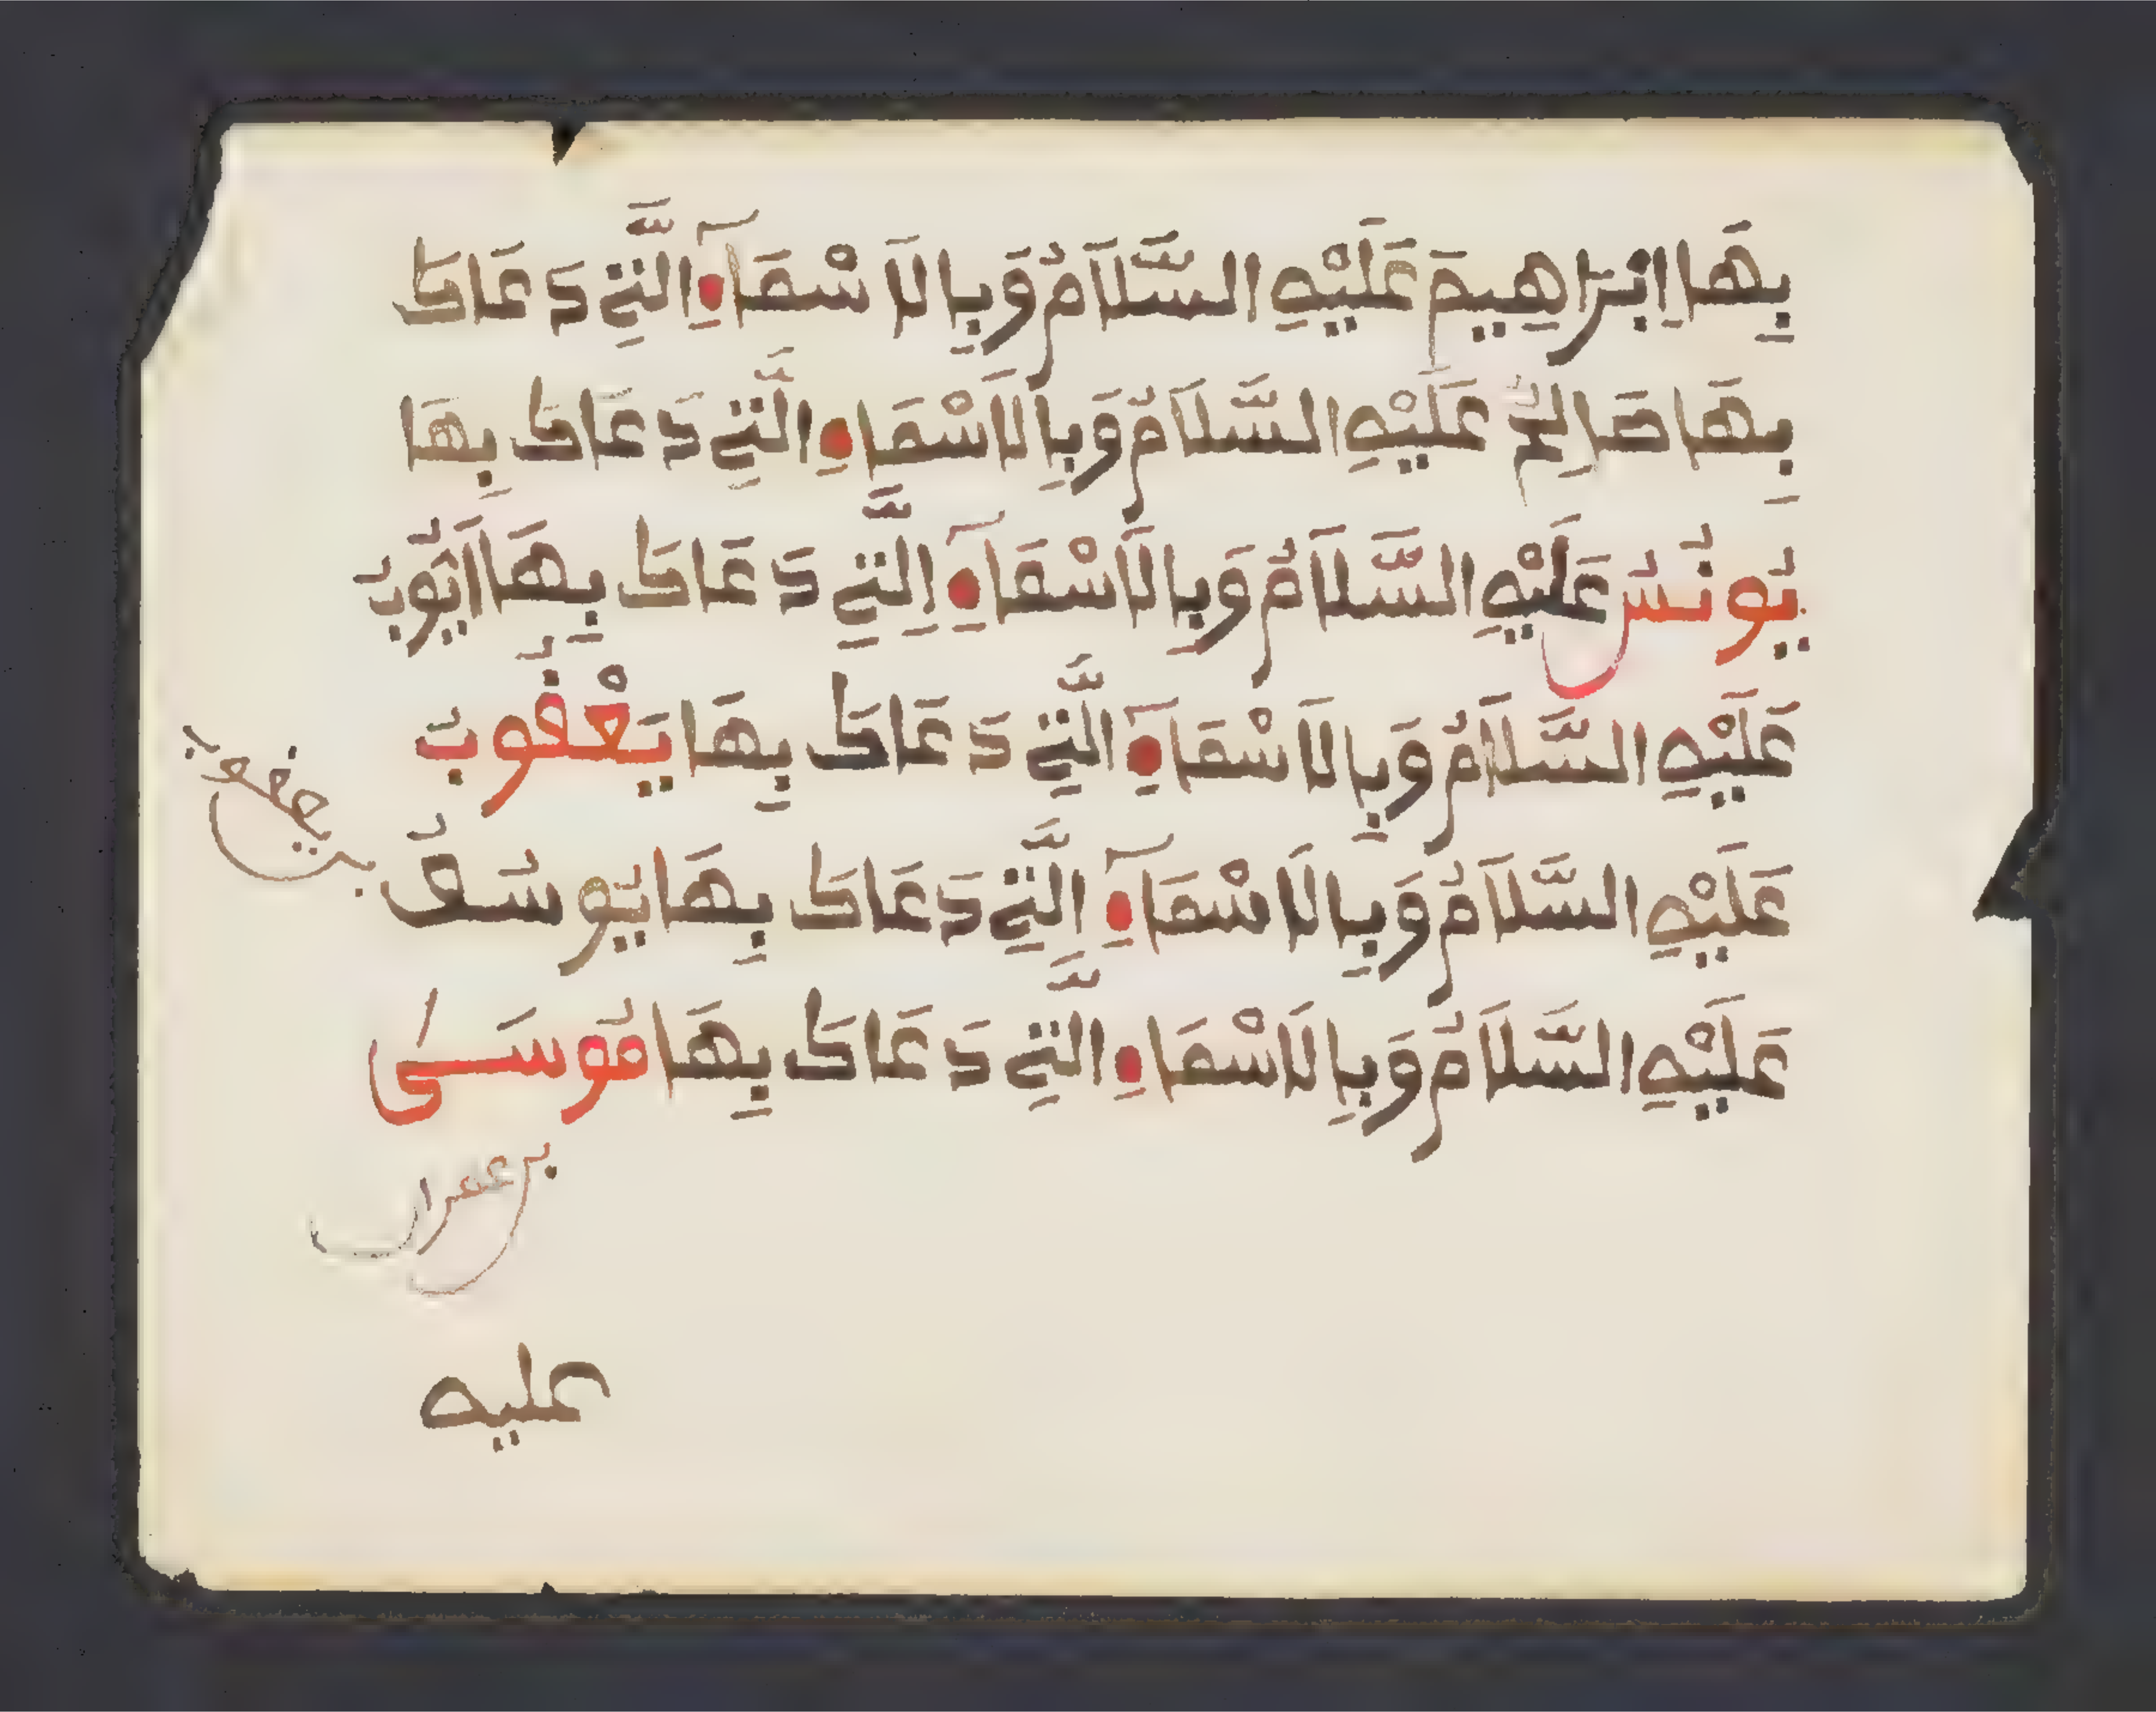 بِهَا اِبْرَاهِيمَ عَلَيْهِ السَّلَامُ وَبِالَاسْمَآءِ الَّتِي دَعَاكَ
بِهَا صَالِحُ عَلَيْهِ السَّلَامُ وَبِالَاسْمَاءِ الَّتِي دَعَاكَ بِهَا
يُونُسُ عَلَيْهِ السَّلَامُ وَبِالَاسْمَآءِ الَّتِي دَعَاكَ بِهَا اَيُّوبُ
عَلَيْهِ السَّلَامُ وَبِالَاسْمَآءِ الَّتِي دَعَاكَ بِهَا يَعْقُوبُ
عَلَيْهِ السَّلَامُ وَبِالَاسْمَآءِ الَّتِي دَعَاكَ بِهَا يُوسُفُ
بن يعقوب
عَلَيْهِ السَّلَامُ وَبِالَاسْمَاءِ الَّتِي دَعَاكَ بِهَا مُوسَىٰ
بن عمران
عليه